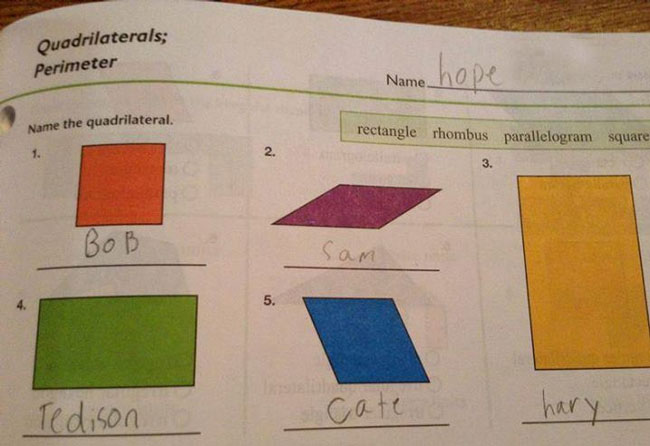 Quadrilaterals;
Perimeter
Name hope
Name the quadrilateral.
rectangle rhombus parallelogram square
1.
2.
3.
BoB
Sam
4.
5.
Tedison
Cate
hary